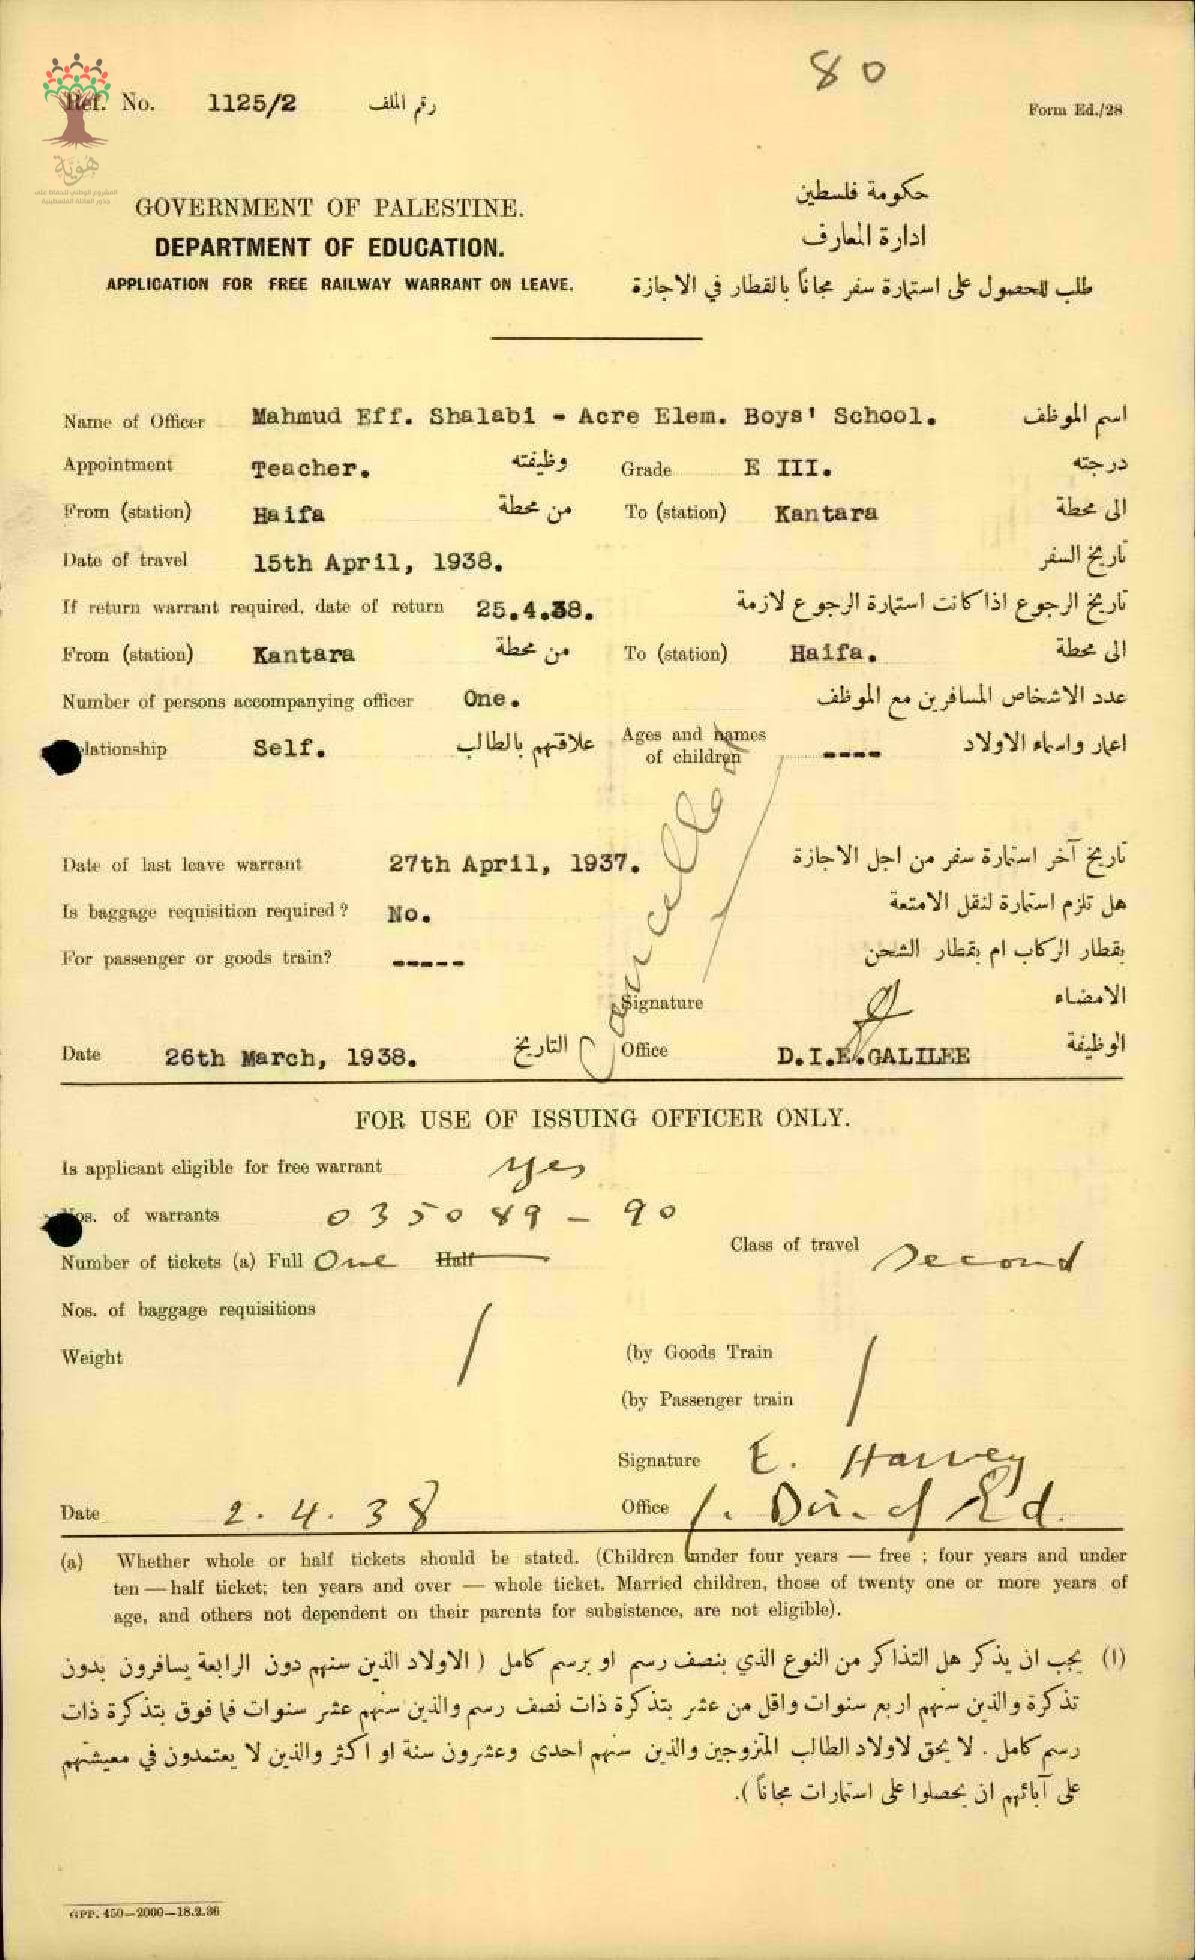 80
Ref. No. 1125/2 رقم الملف
Form Ed./28
هوية
المشروع الوطني للحفاظ على
جذور العائلة الفلسطينية
GOVERNMENT OF PALESTINE.
DEPARTMENT OF EDUCATION.
APPLICATION FOR FREE RAILWAY WARRANT ON LEAVE.
حكومة فلسطين
ادارة المعارف
طلب للحصول على استمارة سفر مجاناً بالقطار في الاجازة
Name of Officer Mahmud Eff. Shalabi - Acre Elem. Boys' School. اسم الموظف
Appointment Teacher. وظيفته Grade E III. درجته
From (station) Haifa من محطة To (station) Kantara الى محطة
Date of travel 15th April, 1938. تاريخ السفر
If return warrant required, date of return 25.4.38. تاريخ الرجوع اذا كانت استمارة الرجوع لازمة
From (station) Kantara من محطة To (station) Haifa. الى محطة
Number of persons accompanying officer One. عدد الاشخاص المسافرين مع الموظف
lationship Self. علاقتهم بالطالب Ages and names of children ---- اعمار واسماء الاولاد
Cancelled
Date of last leave warrant 27th April, 1937. تاريخ آخر استمارة سفر من اجل الاجازة
Is baggage requisition required? No. هل تلزم استمارة لنقل الامتعة
For passenger or goods train? ----- بقطار الركاب ام بقطار الشحن
Signature الامضاء
Date 26th March, 1938. التاريخ Office D.I.E.GALILEE الوظيفة
FOR USE OF ISSUING OFFICER ONLY.
Is applicant eligible for free warrant yes
Nos. of warrants 035089 - 90
Class of travel Second
Number of tickets (a) Full One Half
Nos. of baggage requisitions
Weight
(by Goods Train
(by Passenger train
Signature E. Harvey
Date 2.4.38 Office /. Dir. of Ed.
(a) Whether whole or half tickets should be stated. (Children under four years — free ; four years and under
ten — half ticket; ten years and over — whole ticket. Married children, those of twenty one or more years of
age, and others not dependent on their parents for subsistence, are not eligible).
(١) يجب ان يذكر هل التذاكر من النوع الذي بنصف رسم او برسم كامل ( الاولاد الذين سنهم دون الرابعة يسافرون بدون
تذكرة والذين سنهم اربع سنوات واقل من عشر بتذكرة ذات نصف رسم والذين سنهم عشر سنوات فما فوق بتذكرة ذات
رسم كامل . لا يحق لاولاد الطالب المتزوجين والذين سنهم احدى وعشرون سنة او اكثر والذين لا يعتمدون في معيشتهم
على آبائهم ان يحصلوا على استمارات مجاناً ).
GPP. 450—2000—18.2.36